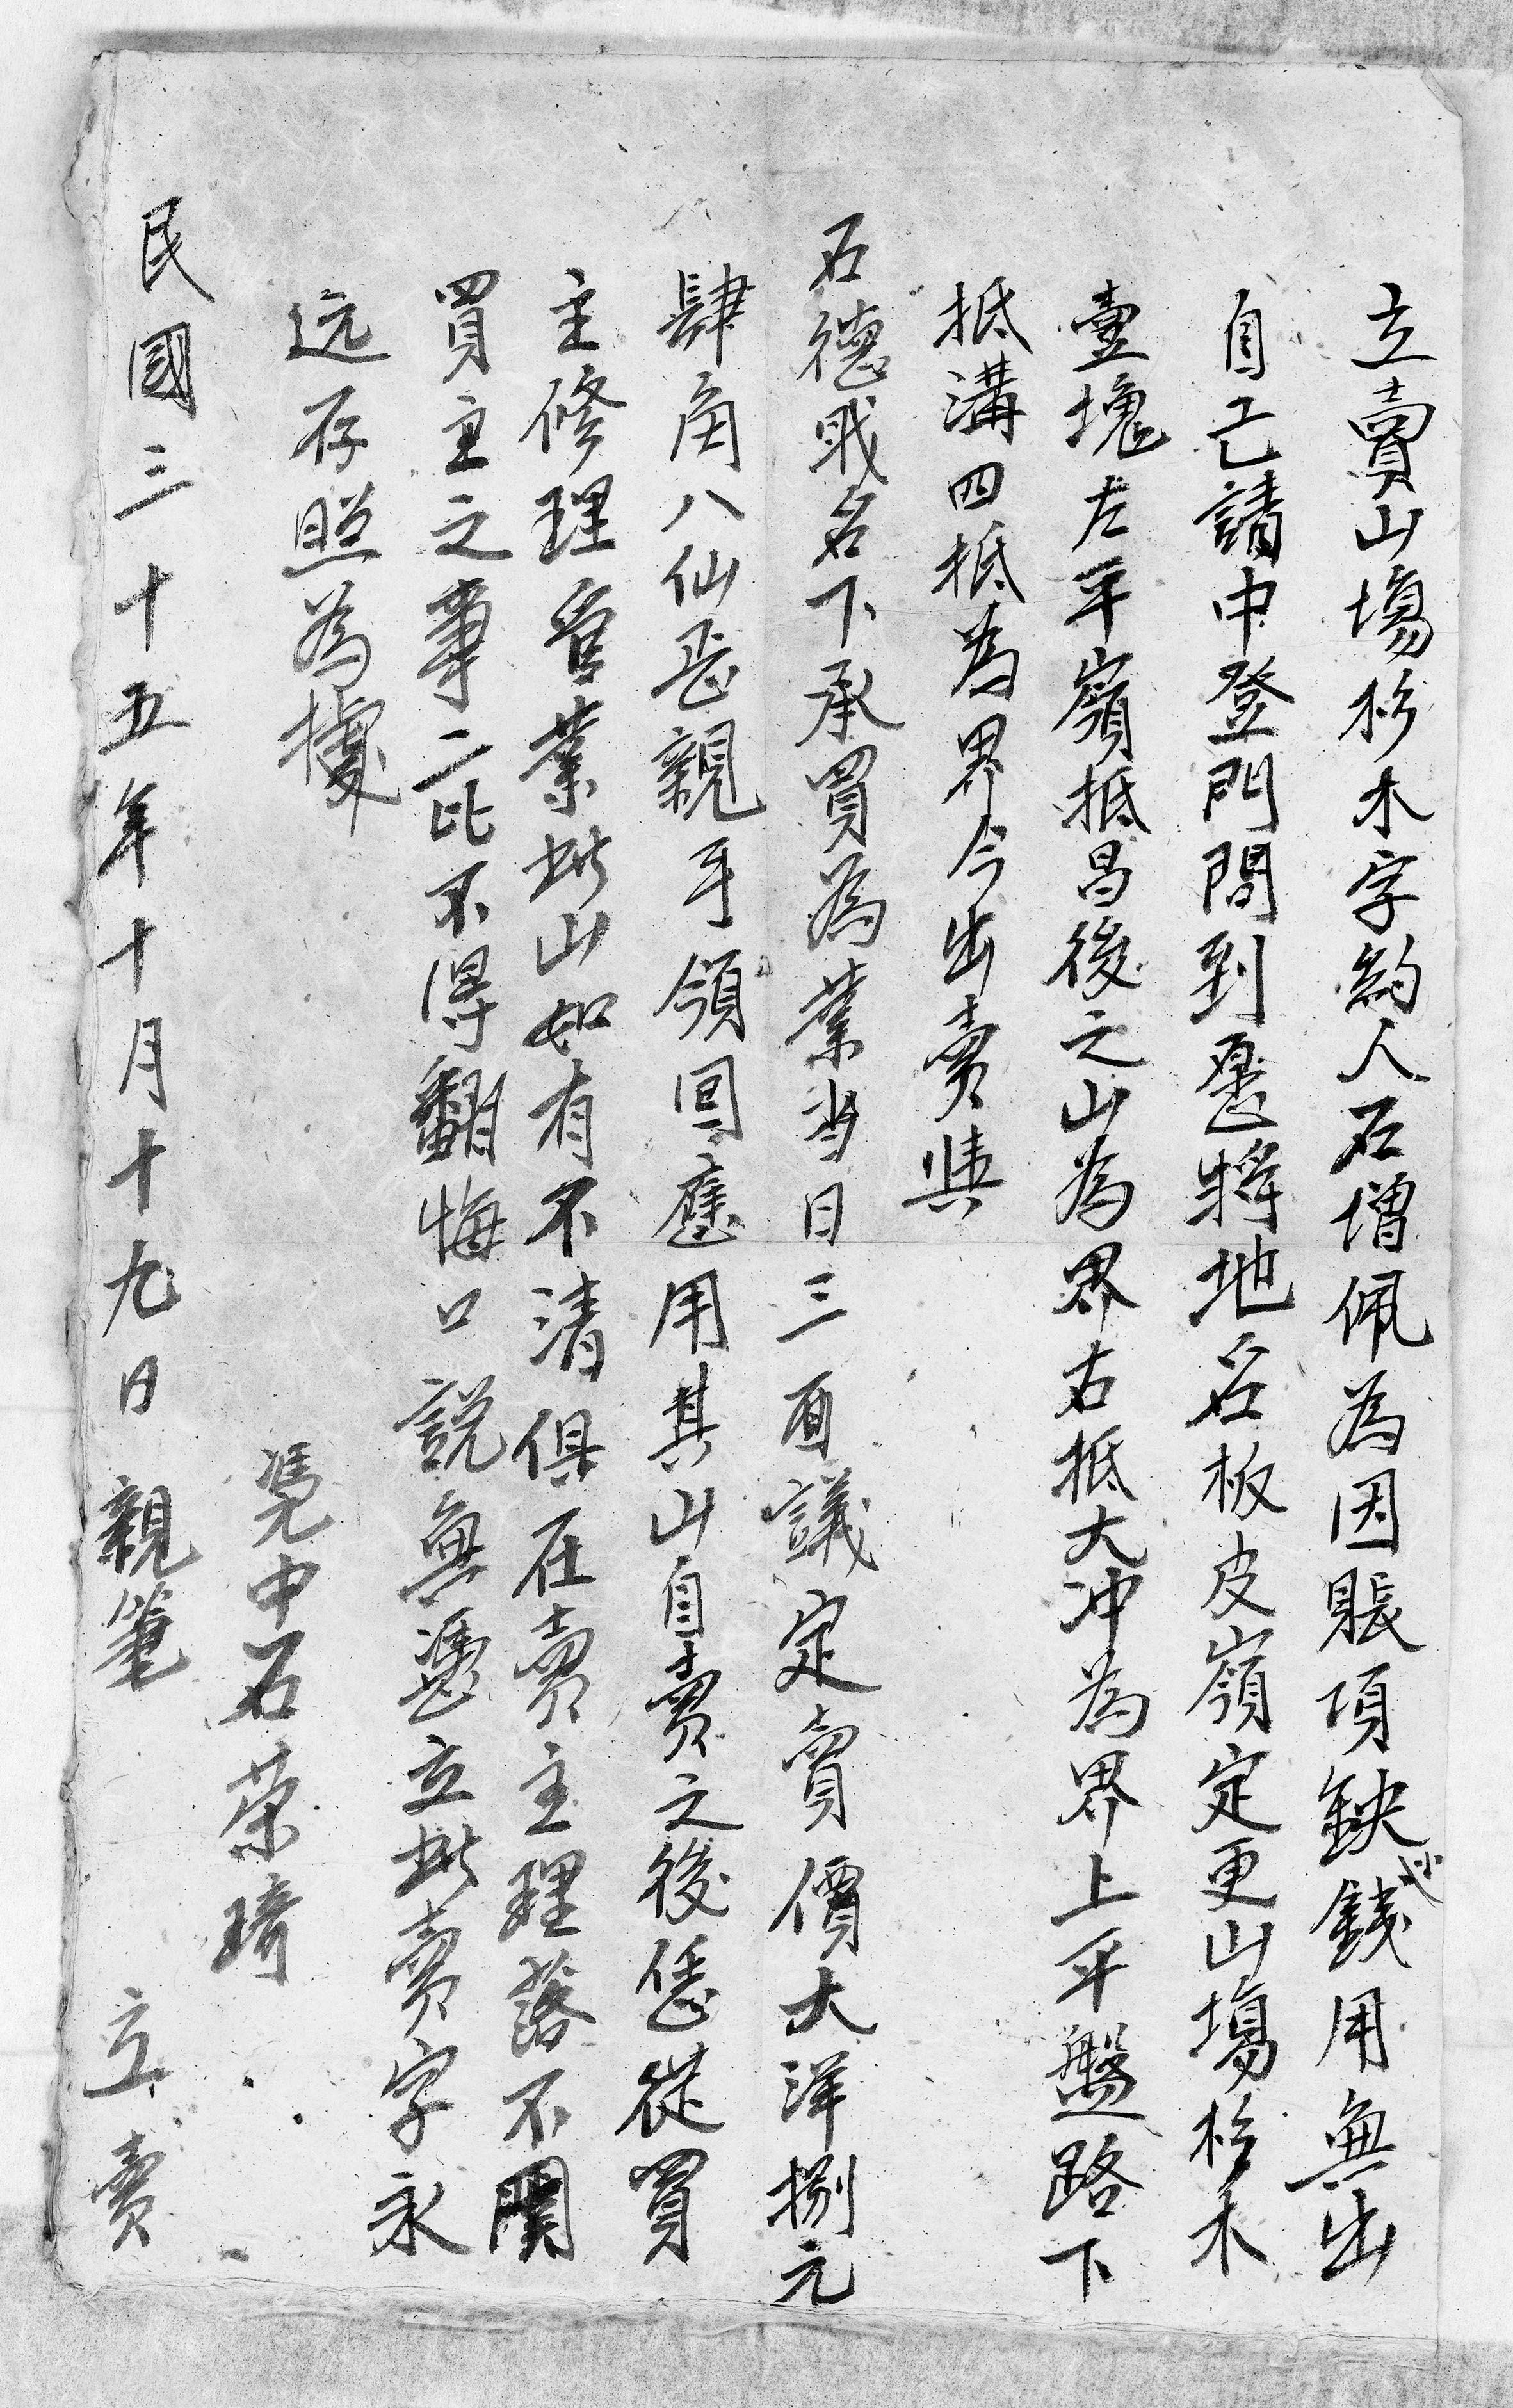 立賣山塲杉木字約人石增佩為因賬項缺少錢用無出
自己請中登門問到愿將地名板皮嶺定更山塲杉木
壹塊左平嶺抵昌後之山為界右抵大冲為界上平盤路下
抵溝四抵為界今出賣與
石德戝名下承買為業当日三面議定賣價大洋捌元
肆角八仙正親手領回應用其山自賣之後恁從買
主修理管業此山如有不清俱在賣主理落不關
買主之事二比不得翻悔口說無憑立此賣字永
远存照為據
凭中石荣琦
民國三十五年十月十九日親筆立賣